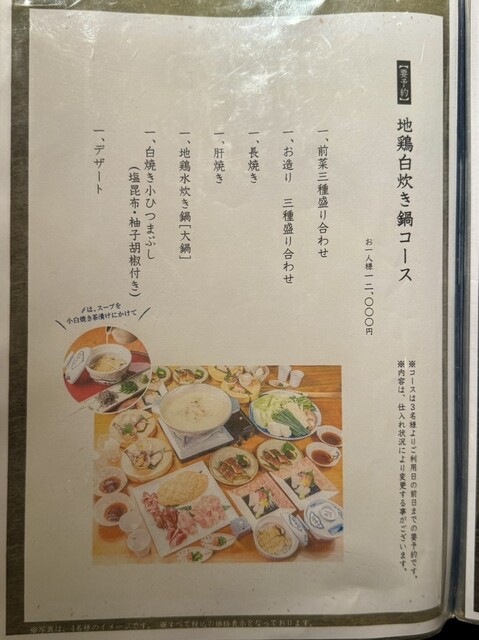 【要予約】
地鶏白炊き鍋コース
お一人様一二、〇〇〇円
※コースは3名様よりご利用日の前日までの要予約です。
※内容は、仕入れ状況により変更する事がございます。
一、前菜三種盛り合わせ
一、お造り 三種盛り合わせ
一、長焼き
一、肝焼き
一、地鶏水炊き鍋[大鍋]
一、白焼き小ひつまぶし
(塩昆布・柚子胡椒付き)
一、デザート
〆は、スープを
小白焼き茶漬けにかけて
※写真は、4名様のイメージです。 ※すべて税込の価格表示となっております。